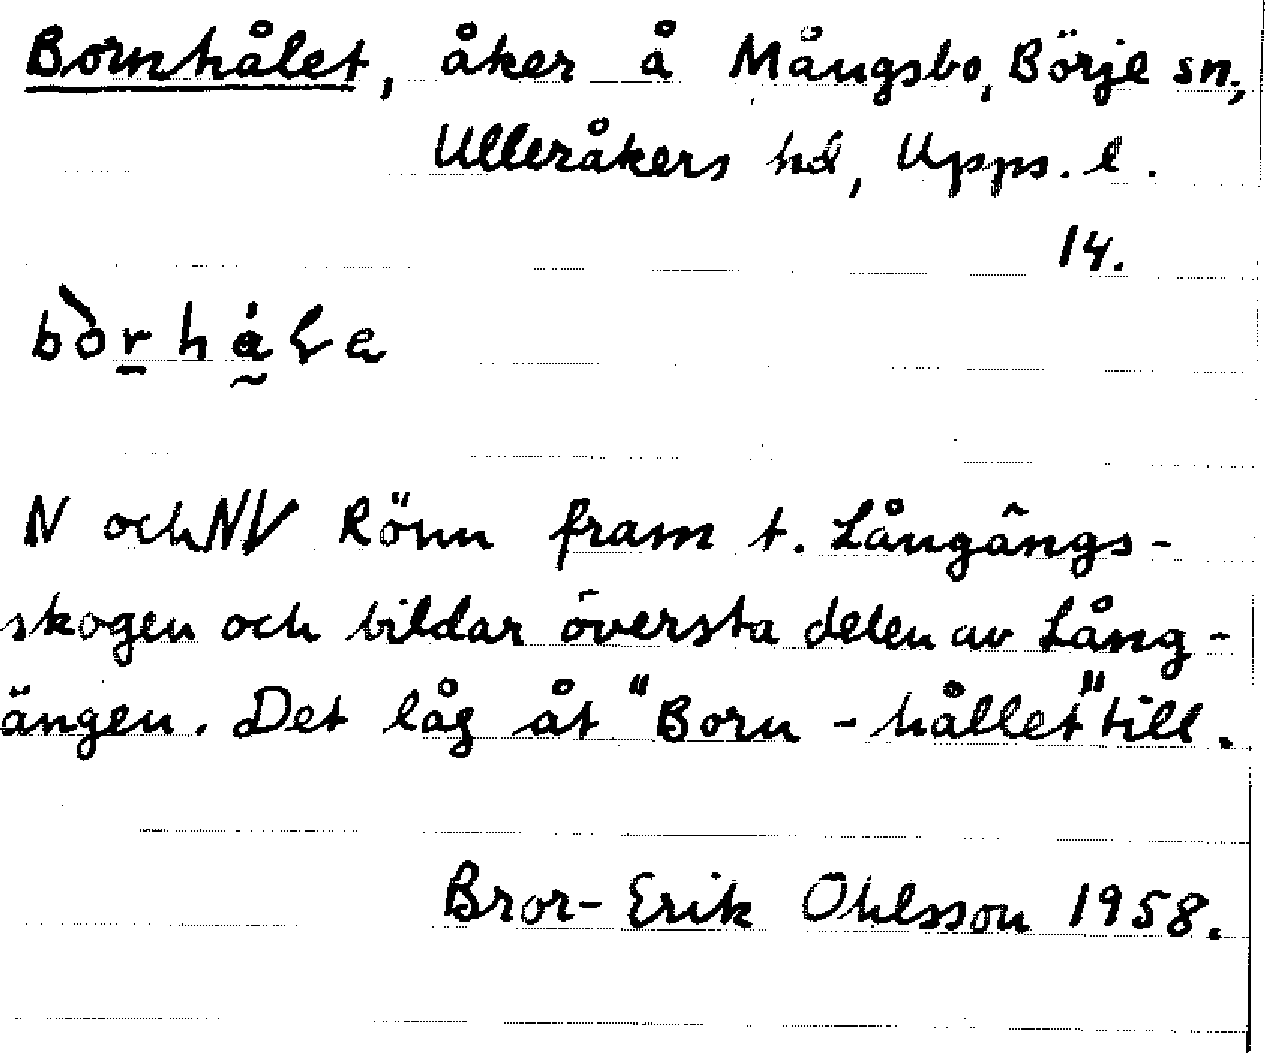 Bornhålet, åker å Mångsbo, Börje sn,
Ulleråkers hd, Upps. l.
14.
N och NV Rönn fram t. Långängs-
skogen och bildar översta delen av Lång-
ängen. Det låg åt "Born - hållet" till.
Bror-Erik Ohlsson 1958.